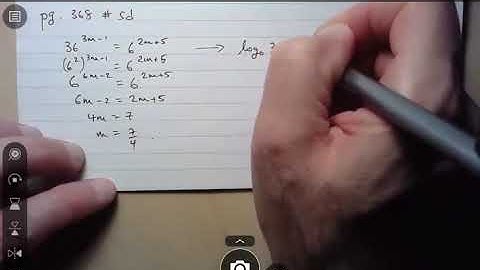 pg. 368 # 5d
36^(3m-1) = 6^(2m+5) → log₆
(6²)^(3m-1) = 6^(2m+5)
6^(6m-2) = 6^(2m+5)
6m-2 = 2m+5
4m = 7
m = 7/4